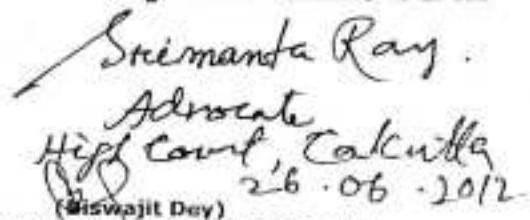 Srimanta Ray.
Advocate
High Court, Calcutta
26.06.2012
(Biswajit Dey)